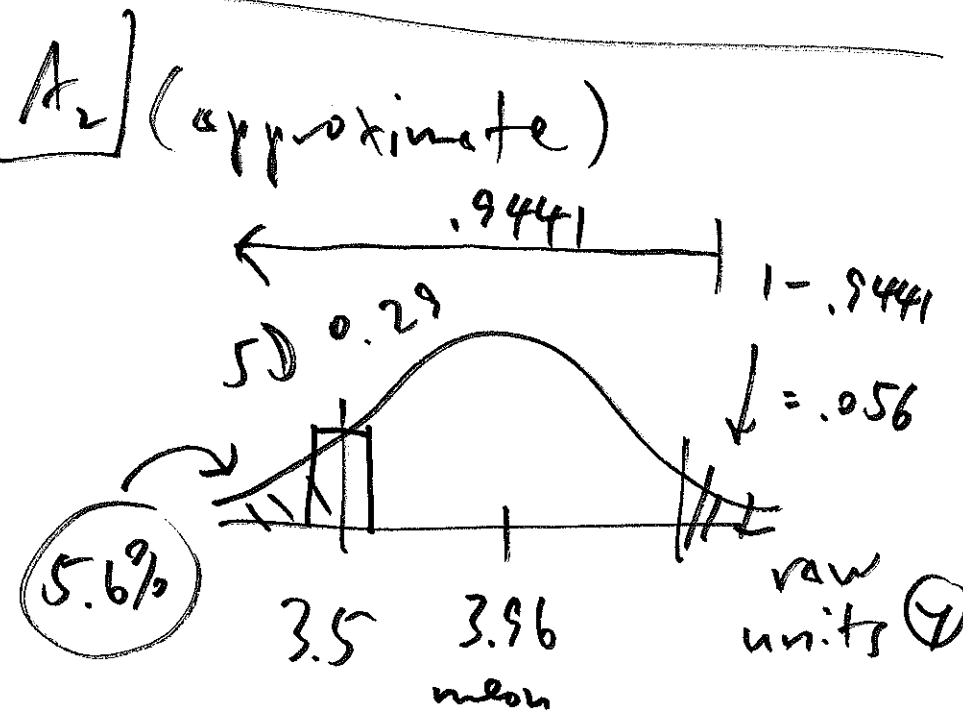 A2] (approximate)
.9441
1 - .9441
SD 0.29
= .056
5.6%
3.5 3.96
mean
raw
units y